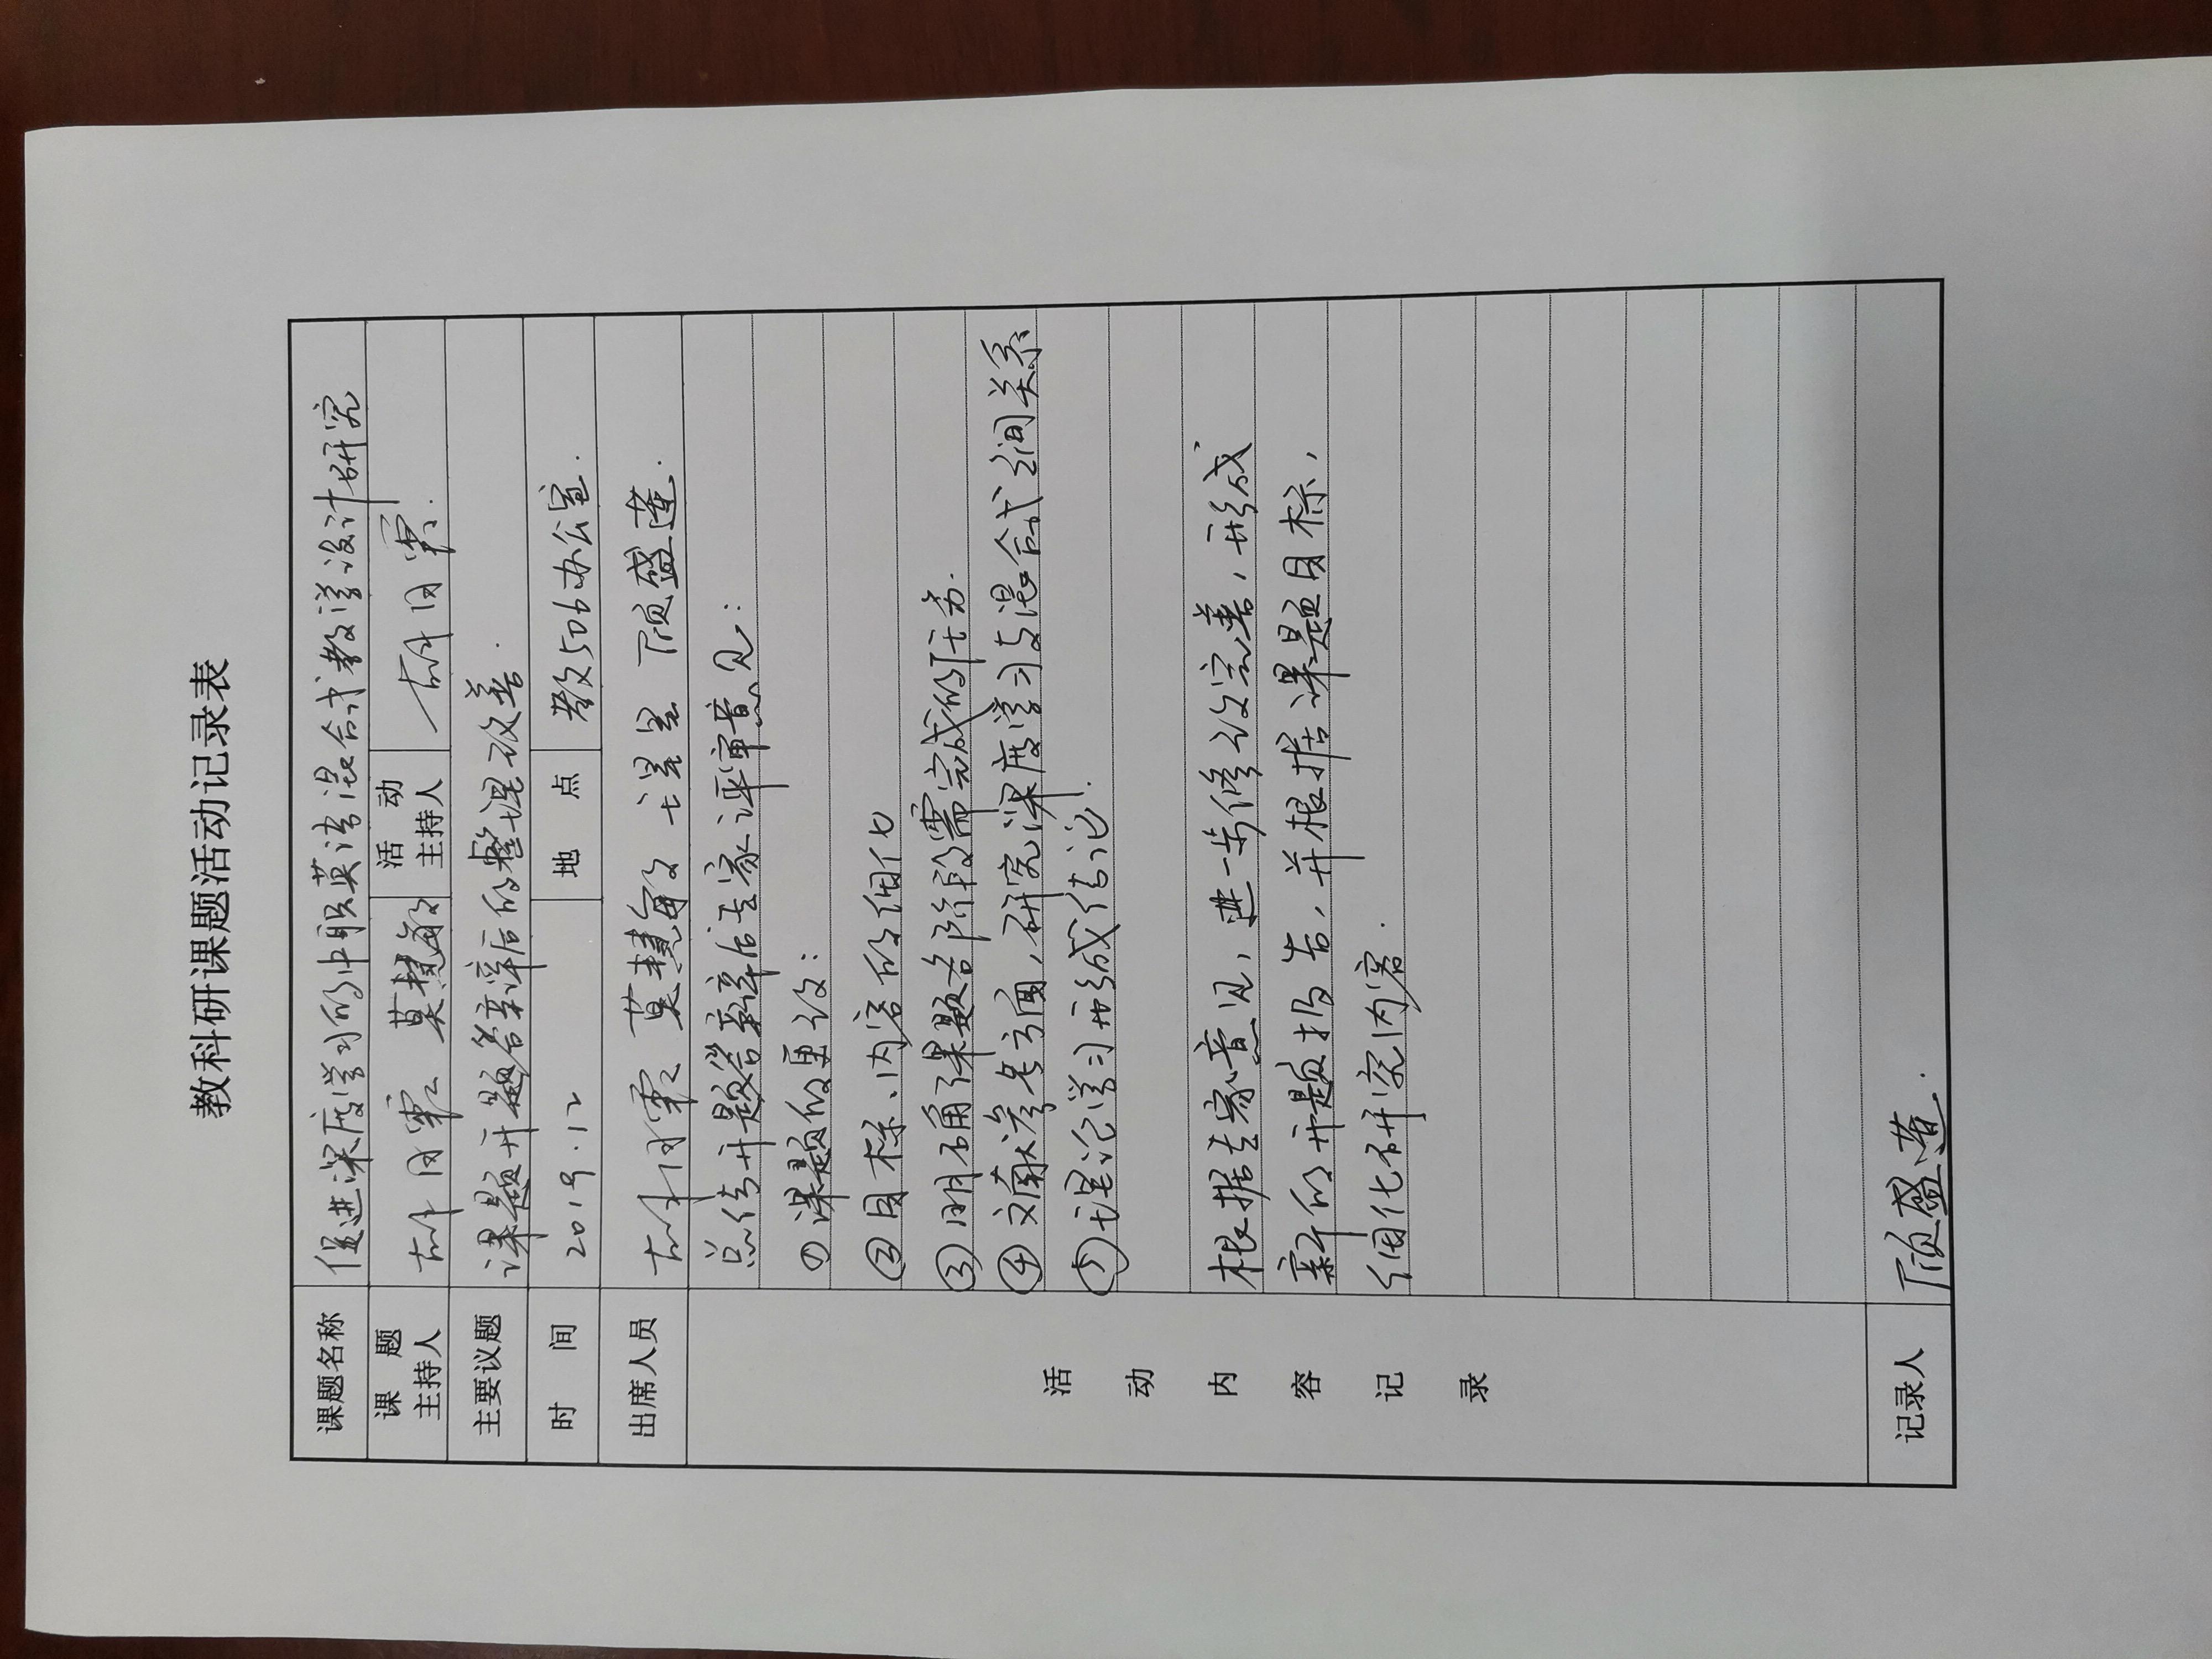 教科研课题活动记录表
课题名称 促进深度学习的中职英语混合式教学设计研究
课题主持人 胡月霞 莫慧敏 活动主持人 胡月霞.
主要议题 课题开题答辩后的整理改善.
时间 2019.12 地点 教506办公室.
出席人员 胡月霞 莫慧敏 王星星 顾盛莲.
活动内容记录
总结开题答辩后专家评审意见:
①课题的更改:
②目标、内容的细化
③明确课题各阶段需完成的任务.
④文献参考方面,研究深度学习与混合式之间关系
⑤理论学习形成结论.
根据专家意见,进一步修改完善,形成
新的开题报告,并根据课题目标,
细化研究内容.
记录人 顾盛莲.